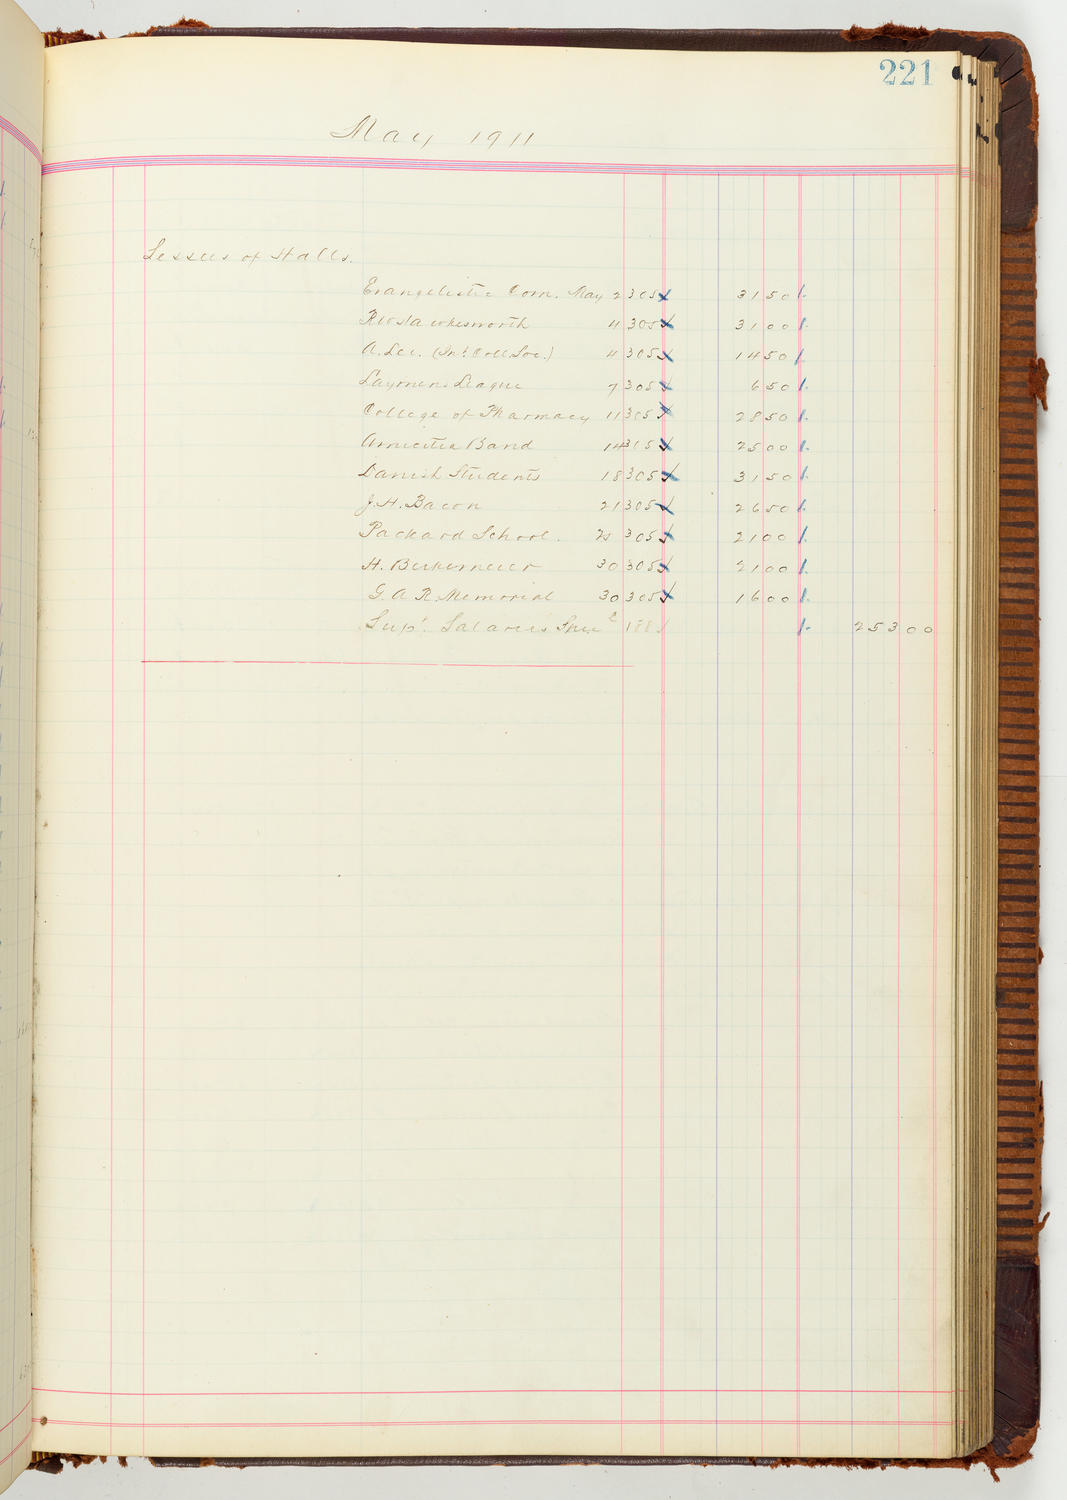 221
May 1911
Lessees of Halls.
Evangelistic Com. May 2 305 31 50
4 305 31 00
A. Lee. (Int. Coll. Soc.) 4 305 14 50
Laymens League 7 305 6 50
College of Pharmacy 11 305 28 50
Amicitia Band 14 305 25 00
Danish Students 18 305 31 50
J. H. Bacon 21 305 26 50
Packard School. 305 21 00
H. Birkermeier 30 305 21 00
G. A. R. Memorial 30 305 16 00
Sup't. Salaries 188 253 00